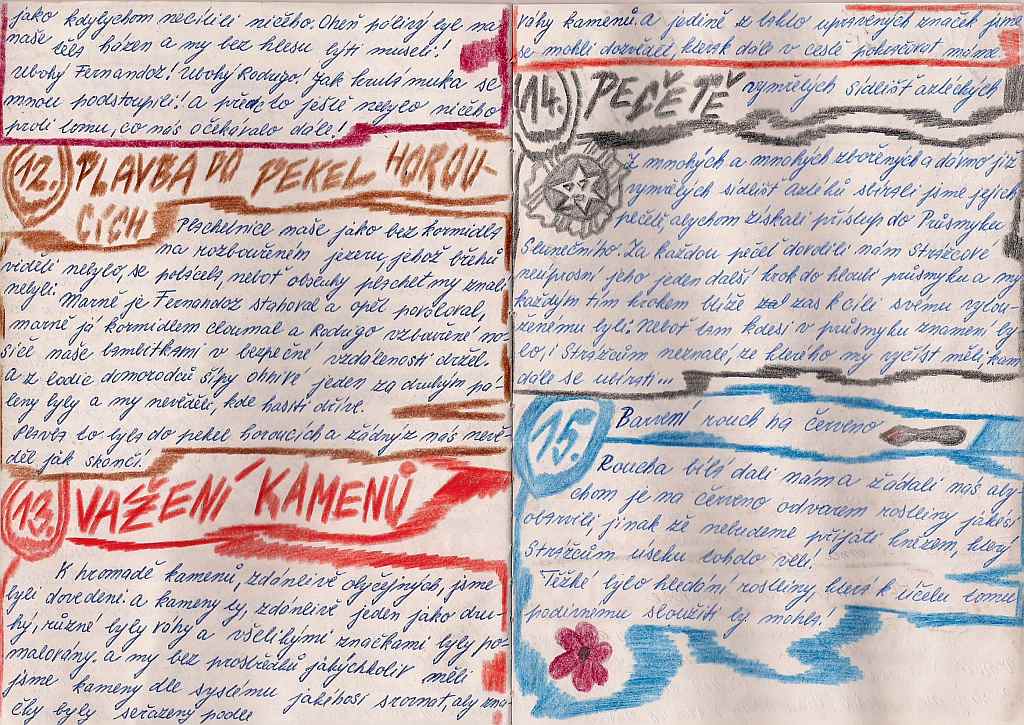 jako kdybychom necítili ničeho. Oheň pálivý byl na
naše těla házen a my bez hlesu býti museli!
Ubohý Fernandoz! Ubohý Rodugo! Jak krutá muka se
mnou podstoupili! A přeče to ještě nebylo ničeho
proti tomu, co nás očekávalo dále!
12. PLAVBA DO PEKEL HOROU-
CÍCH
Plachetnice naše jako bez kormidla
na rozbouřeném jezeru, jehož břehů
viděti nebylo, se potácela, neboť obsluhy plachet my znalí
nebyli. Marně je Fernandoz stahoval a opět povoloval,
marně já kormidlem cloumal a Rodugo vzbouřené no-
siče naše bambitkami v bezpečné vzdálenosti držel.
A z lodic domorodců šípy ohnivé jeden za druhým pá-
leny byly a my nevěděli, kde hasiti dříve.
Plavba to byla do pekel horoucích a žádný z nás nevě-
děl jak skončí!
13. VAŽENÍ KAMENŮ
K hromadě kamenů, zdánlivě obyčejných, jsme
byli dovedeni. A kameny ty, zdánlivě jeden jako dru-
hý, různé byly váhy a všelikými značkami byly po-
malovány. A my bez prostředků jakýchkoliv měli
jsme kameny dle systému jakéhosi srovnat, aby zna-
čky byly seřazeny podle
váhy kamenů. A jedině z takto upravených značek jsme
se mohli dozvěděti, kterak dále v cestě pokračovat máme.
14. PEČETĚ vymřelých sídlišť aztéckých
Z mnohých a mnohých zbořených a dávno již
vymřelých sídlišť Aztéků sbírali jsme jejich
pečeti, abychom získali přístup do Průsmyku
Slunečního. Za každou pečeť dovolili nám Strážcové
neúprosní jeho jeden další krok do hloubi průsmyku a my
každým tím krokem blíže za zas k cíli svému vytou-
ženému byli. Neboť tam kdesi v průsmyku znamení by-
lo, i Strážcům neznalé, ze kterého my vyčíst měli, kam
dále se ubírati...
15. Barvení rouch na červeno
Roucha bílá dali nám a žádali nás aby-
chom je na červeno odvarem rostliny jakési
obarvili, jinak že nebudeme přijati knězem, který
Strážcům úseku tohoto velí!
Těžké bylo hledání rostliny, která k účelu tomu
podivnému sloužiti by mohla.